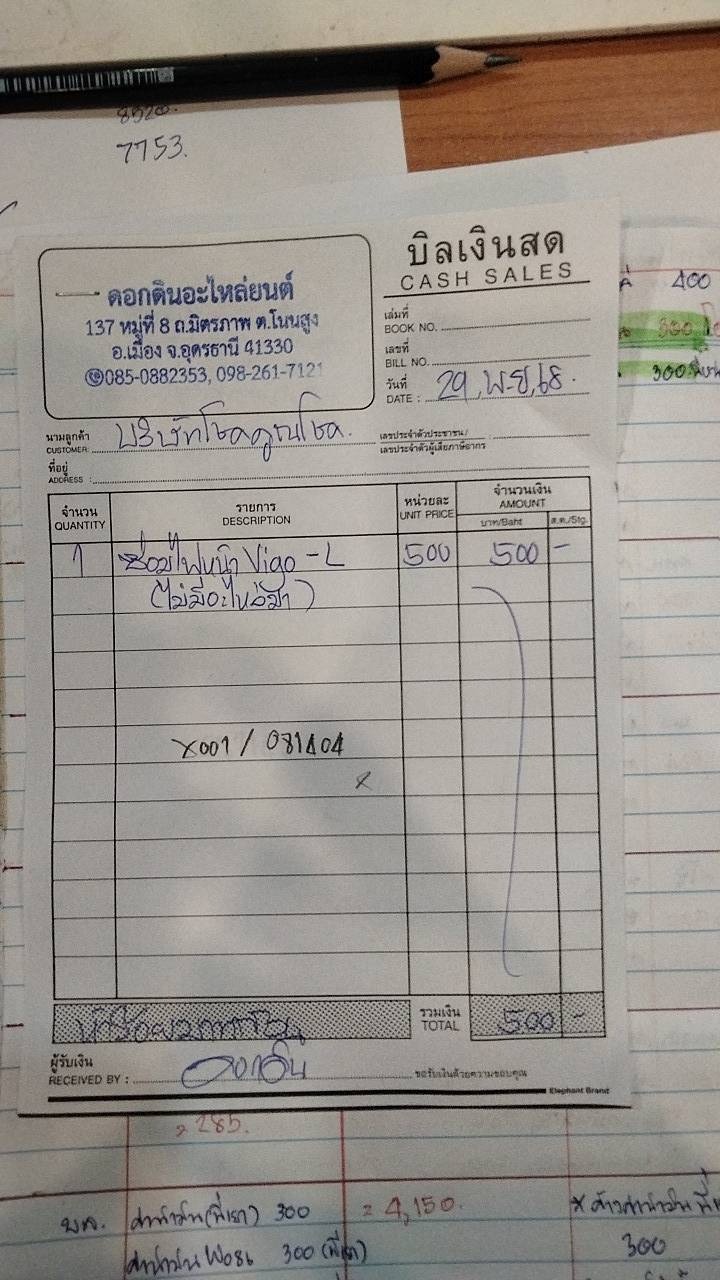 8520.
7753.
ดอกดินอะไหล่ยนต์
137 หมู่ที่ 8 ถ.มิตรภาพ ต.โนนสูง
อ.เมือง จ.อุดรธานี 41330
085-0882353, 098-261-7121
บิลเงินสด
CASH SALES
เล่มที่
BOOK NO.
เลขที่
BILL NO.
วันที่
DATE : 29, พ.ย, 68.
นามลูกค้า
CUSTOMER: บริษัทโชคคูณโชค.
เลขประจำตัวประชาชน/
เลขประจำตัวผู้เสียภาษีอากร :
ที่อยู่
ADDRESS :
จำนวน
QUANTITY
รายการ
DESCRIPTION
หน่วยละ
UNIT PRICE
จำนวนเงิน
AMOUNT
บาท/Baht ส.ต./Stg.
1 ซ่อมไฟหน้า Vigo - L 500 500 -
(ไม่มีอะไหล่มา)
X001 / 081404
x
ห้าร้อยบาทถ้วน
รวมเงิน
TOTAL 500 -
ผู้รับเงิน
RECEIVED BY : ดอกดิน
ขอรับเงินด้วยความขอบคุณ
Elephant Brand
400
300
300
285.
ค่าน้ำมัน(พี่เรา) 300 = 4,150.
300